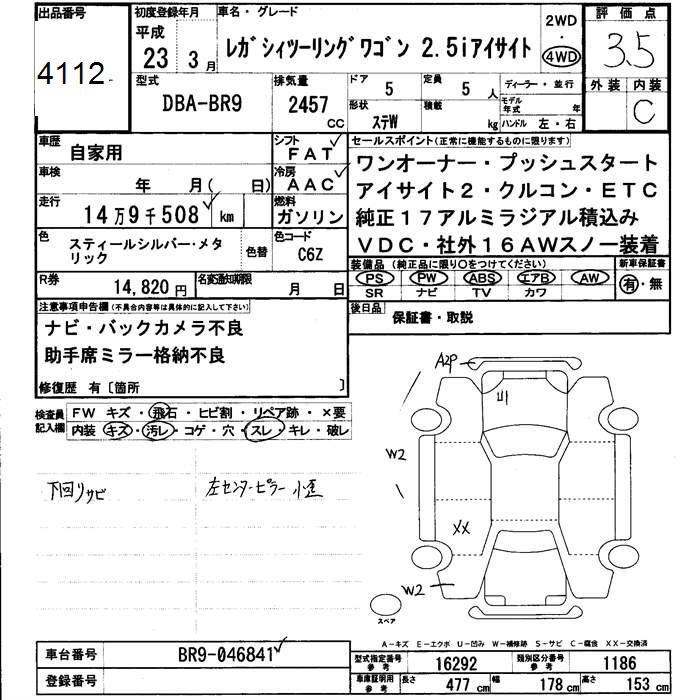 出品番号
4112
初度登録年月
平成
23 3月
車名・グレード
レガシィツーリングワゴン 2.5iアイサイト
2WD
・
4WD
評価点
3.5
外装 内装
C
型式
DBA-BR9
排気量
2457
CC
ドア
5
定員
5
人
形状
ステW
積載
kg
ディーラー・並行
モデル年式
年
ハンドル 左・右
車歴
自家用
シフト
FAT
車検
年 月( 日)
冷房
AAC
走行
14万9千508 km
燃料
ガソリン
色
スティールシルバー・メタリック
色替
色コード
C6Z
R券
14,820円
名変通知期限
月 日
セールスポイント(正常に機能するものに限ります)
ワンオーナー・プッシュスタート
アイサイト2・クルコン・ETC
純正17アルミラジアル積込み
VDC・社外16AWスノー装着
装備品(純正品に限り○をつけてください)
PS PW ABS エアB AW
SR ナビ TV カワ
新車保証書
有・無
後日品
保証書・取説
注意事項申告欄(不具合内容等は具体的に記入して下さい)
ナビ・バックカメラ不良
助手席ミラー格納不良
修復歴 有〔箇所 〕
検査員
記入欄
FW キズ・飛石・ヒビ割・リペア跡・×要
内装 キズ・汚レ・コゲ・穴・スレ・キレ・破レ
下回リサビ
左センターピラー小歪
A2P
W2
XX
W2
スペア
A-キズ E-エクボ U-凹み W-補修跡 S-サビ C-腐食 XX-交換済
車台番号
BR9-046841
登録番号
型式指定番号
参考
16292
類別区分番号
参考
1186
車庫証明用
参考
長さ
477 cm
幅
178 cm
高さ
153 cm